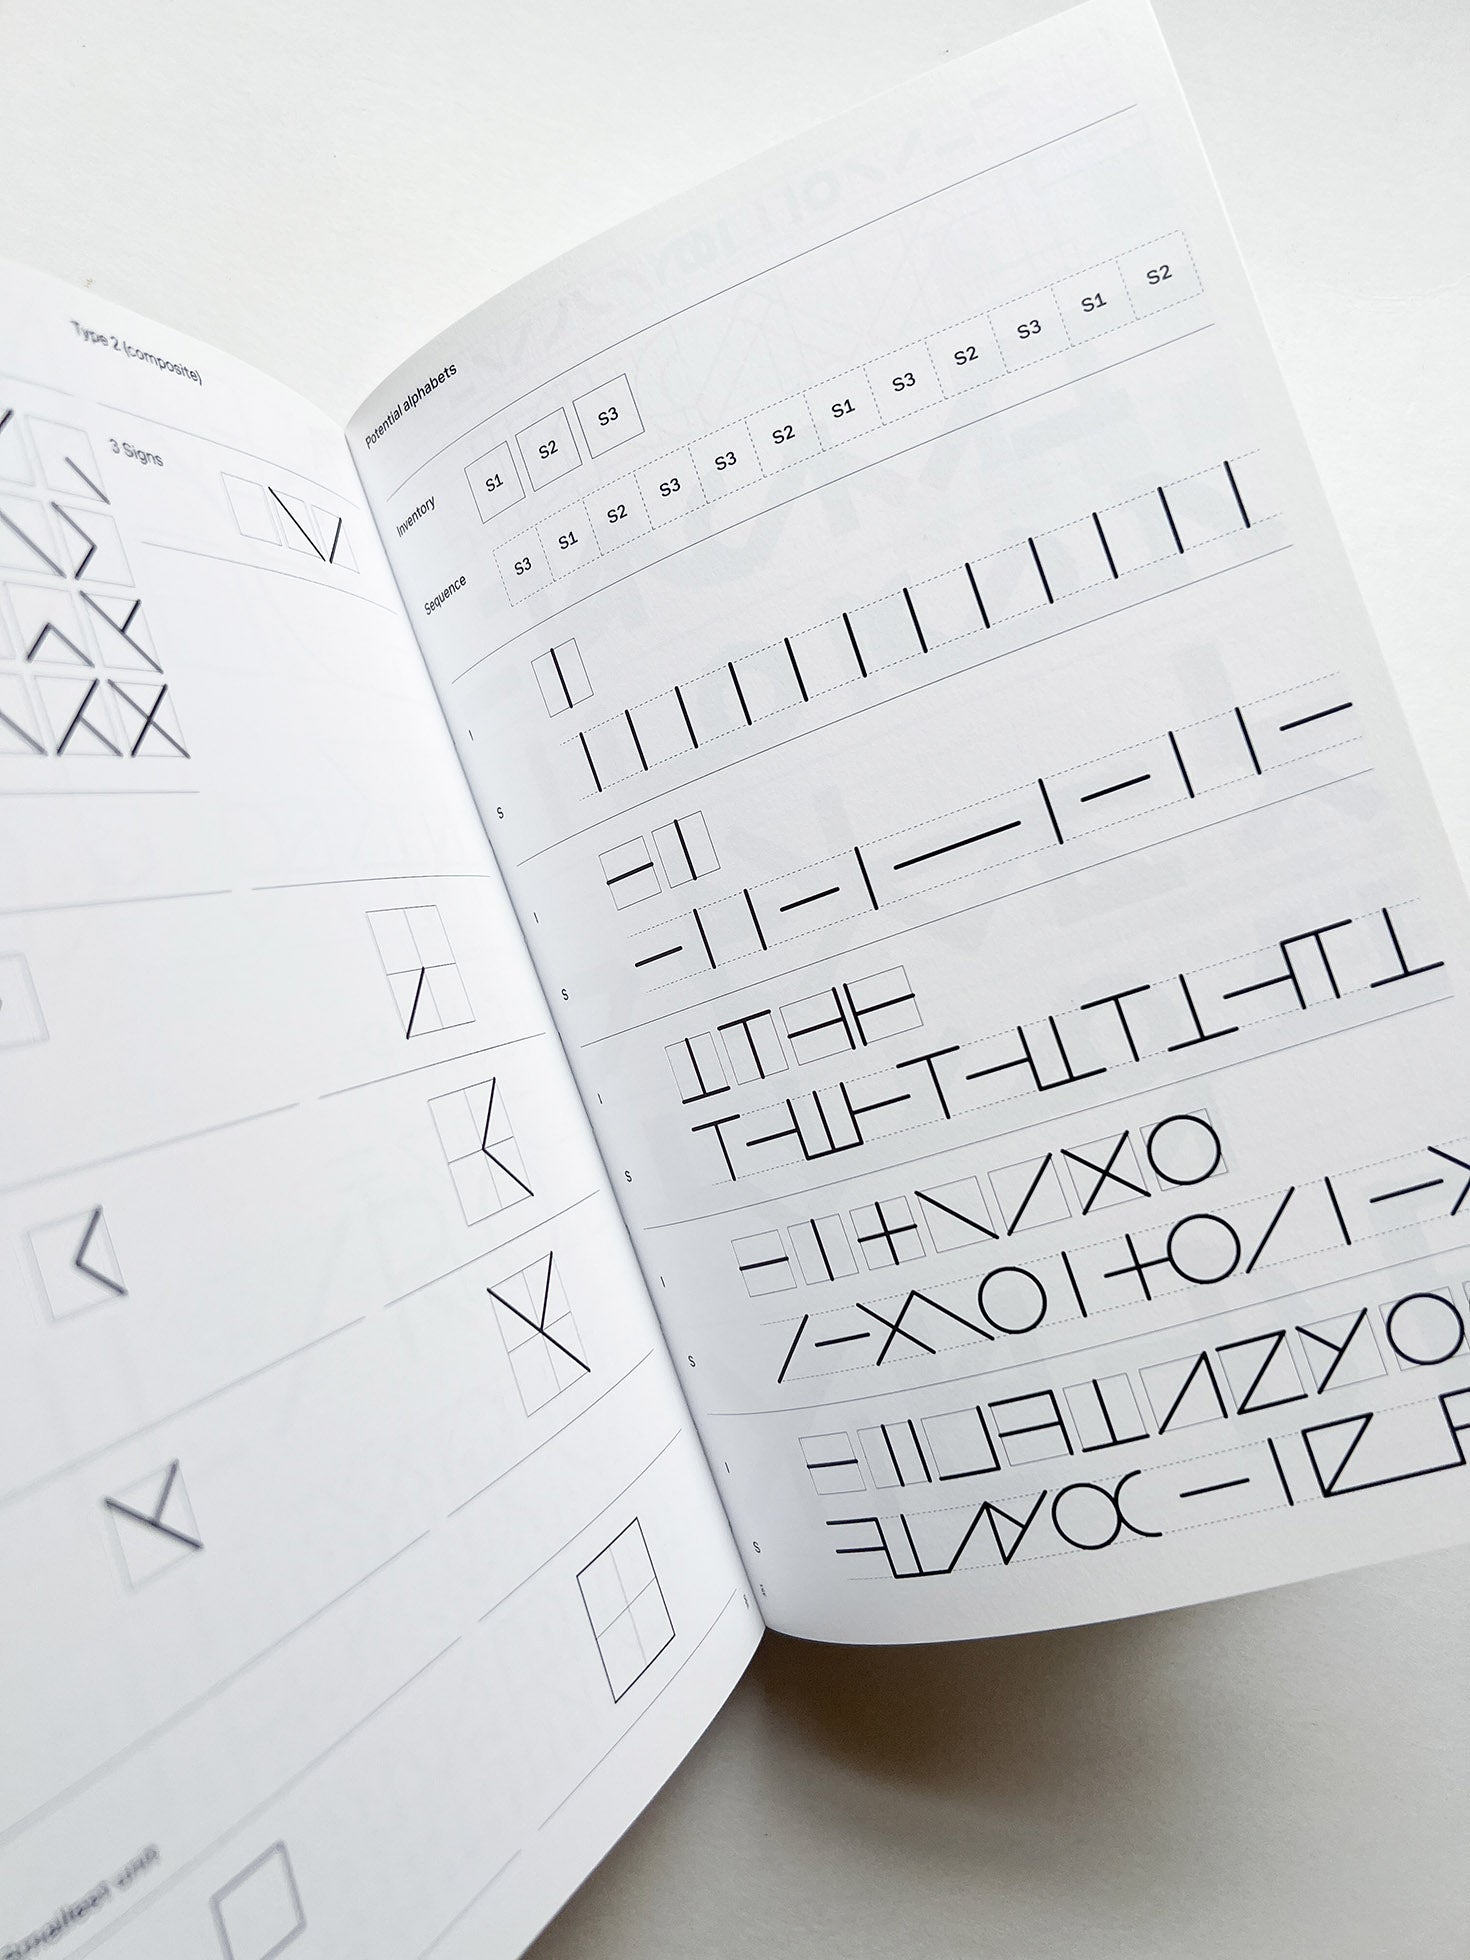 Type 2 (composite)
3 Signs
Potential alphabets
Inventory
S1 S2 S3
Sequence
S3 S1 S2 S3 S3 S2 S1 S3 S2 S3 S1 S2
I
S
I
S
I
S
I
S
I
S